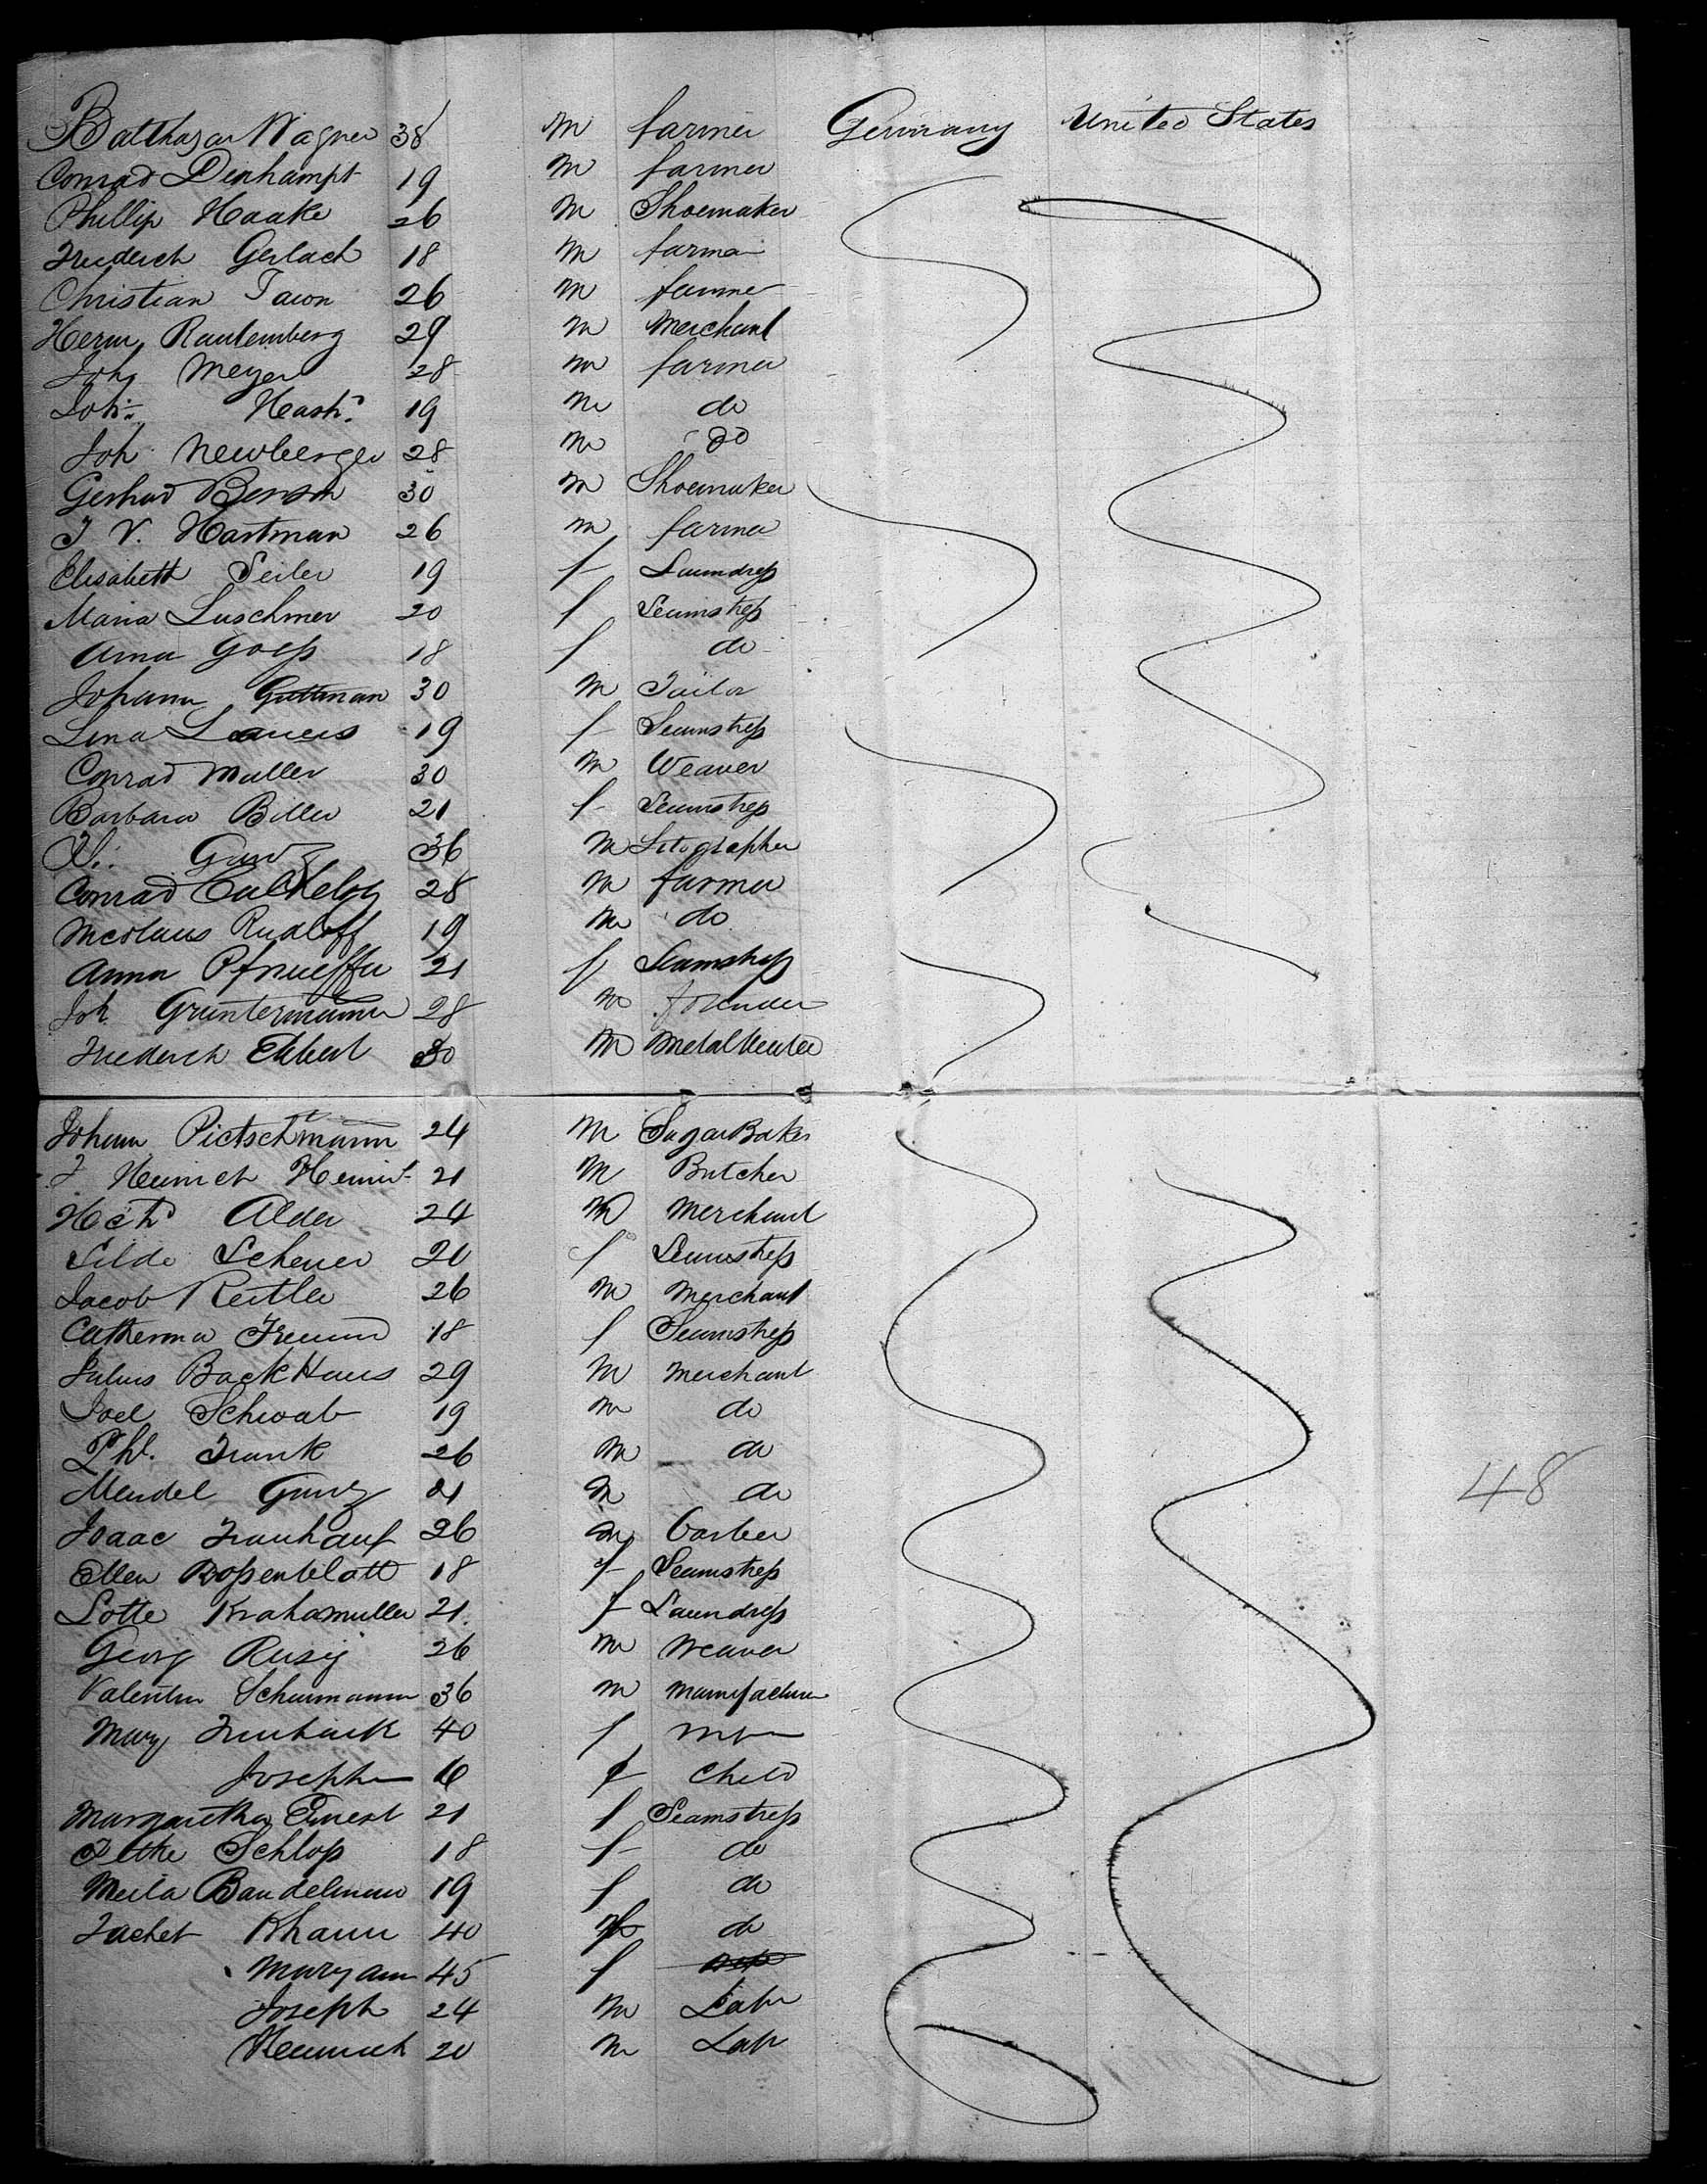 Balthazar Wagner 38 m farmer Germany United States
Conrad Denhampt 19 m farmer
Phillip Haake 26 m Shoemaker
Friederich Gerlach 18 m farmer
Christian 26 m farmer
Herm Rautemberg 29 m Merchant
Joh Meyer 28 m farmer
Joh: 19 m do
Joh Newberger 28 m do
Gerhard Benson 30 m Shoemaker
J V. Hartman 26 m farmer
Elisabeth Seiler 19 f Laundress
Maria Luschmer 20 f Seamstress
Anna Goess 18 f do
Johann Guttman 30 m Tailor
Lina 19 f Seamstress
Conrad Muller 30 m Weaver
Barbara Biller 21 f Seamstress
36 m Litographer
Conrad 28 m farmer
Nicolaus Rudloff 19 m do
Anna Pfnueffer 21 f Seamstress
Joh Gruntermann 28 m
Friederich Ekbert 30 m
Johann Pietschmann 24 m Sugar Baker
J Heinrich 21 m Butcher
Alder 24 m Merchant
Scheuer 20 f Seamstress
Jacob Reitler 26 m Merchant
Catherina Freund 18 f Seamstress
Julius BackHaus 29 m Merchant
Joel Schwab 19 m do
Phl. Frank 26 m do
Mendel Gunz 21 m do
Isaac Frauhauf 26 m
Ellen Rossenblatt 18 f Seamstress
Lotte Krahamuller 21 f Laundress
Georg Rusig 26 m Weaver
Valentin Schurmann 36 m Manufacturer
Mary 40 f
Joseph 16 f Child
Margaretha Ernest 21 f Seamstress
Jettke Schloss 18 f do
Meila Bandelmann 19 f do
Khann 40 do
Maryann 45 f
Joseph 24 m Labr
Heinrich 20 m Labr
48